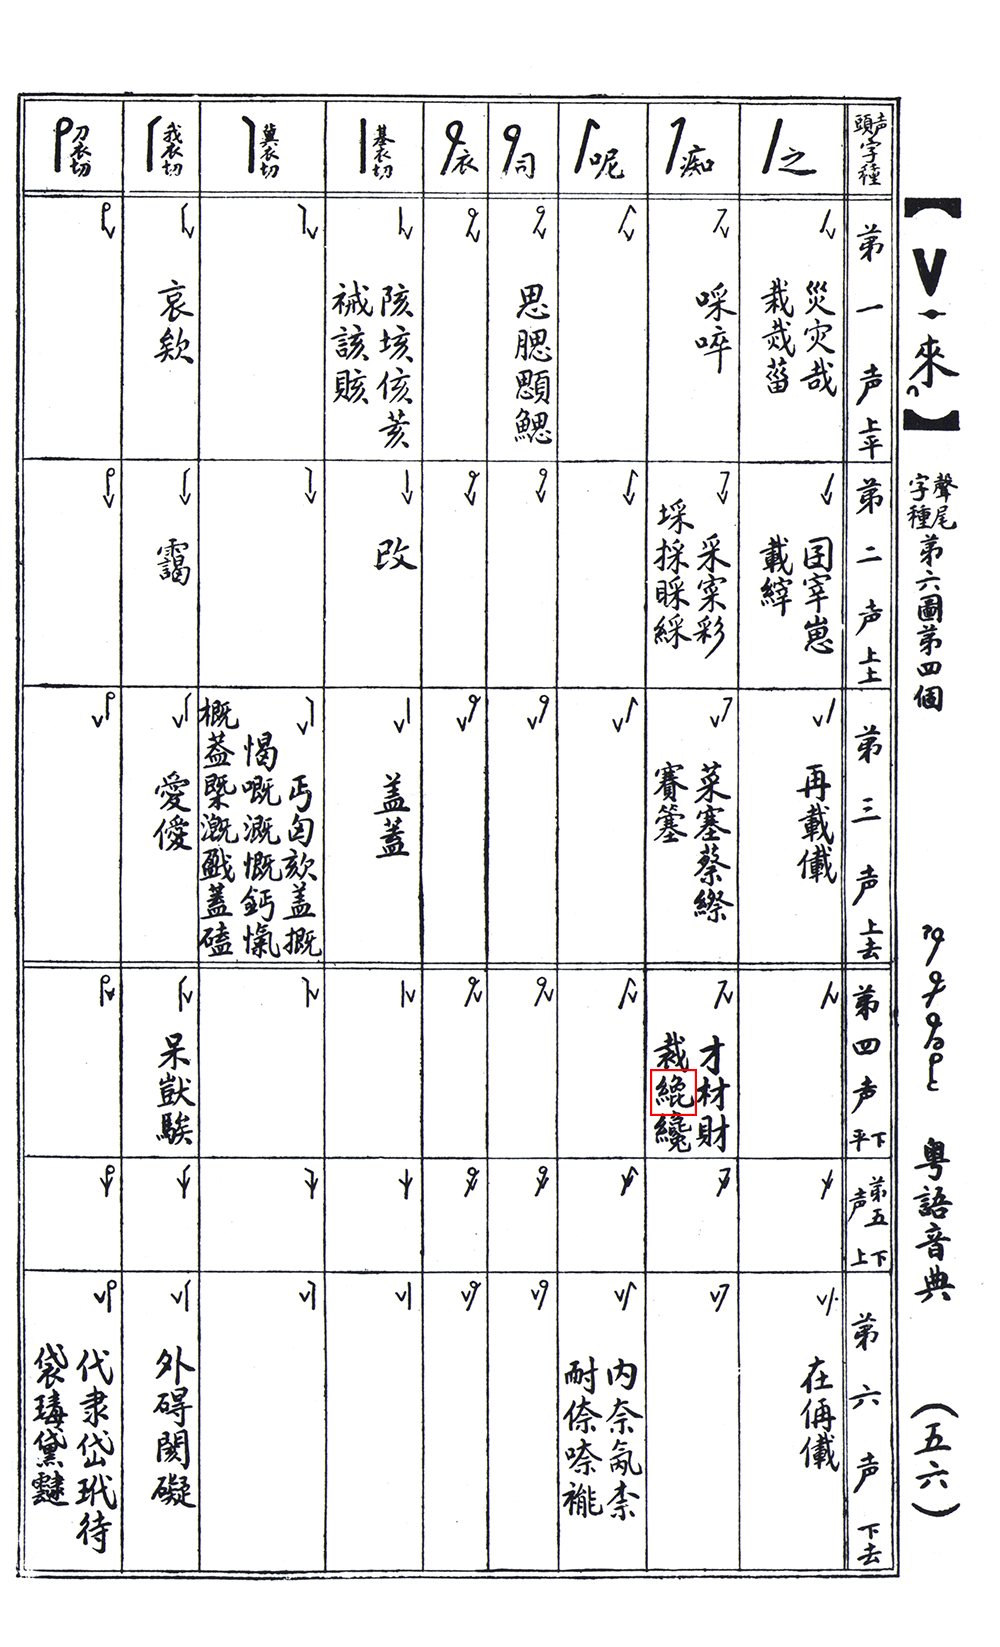 【V·來】
聲尾
字種
第六圖第四個
粵語音典
(五六)
声頭字種
之
痴
呢
司
衣
基衣切
冀衣切
我衣切
刀衣切
第一声上平
災灾哉
栽烖菑
啋啐
思腮顋鰓
陔垓侅荄
裓該賅
哀欸
第二声上上
囝宰崽
載縡
采寀彩
埰採睬綵
改
靄
第三声上去
再載儎
菜塞蔡縩
賽簺
盖蓋
丐匃欬盖摡
愒嘅溉慨鈣愾
概葢槩漑戤蓋磕
愛僾
第四声下平
才材財
裁纔
呆獃騃
第五声下上
第六声下去
在侢儎
內奈氝柰
耐倷㖠褦
外碍閡礙
代隶岱玳待
袋瑇黛靆